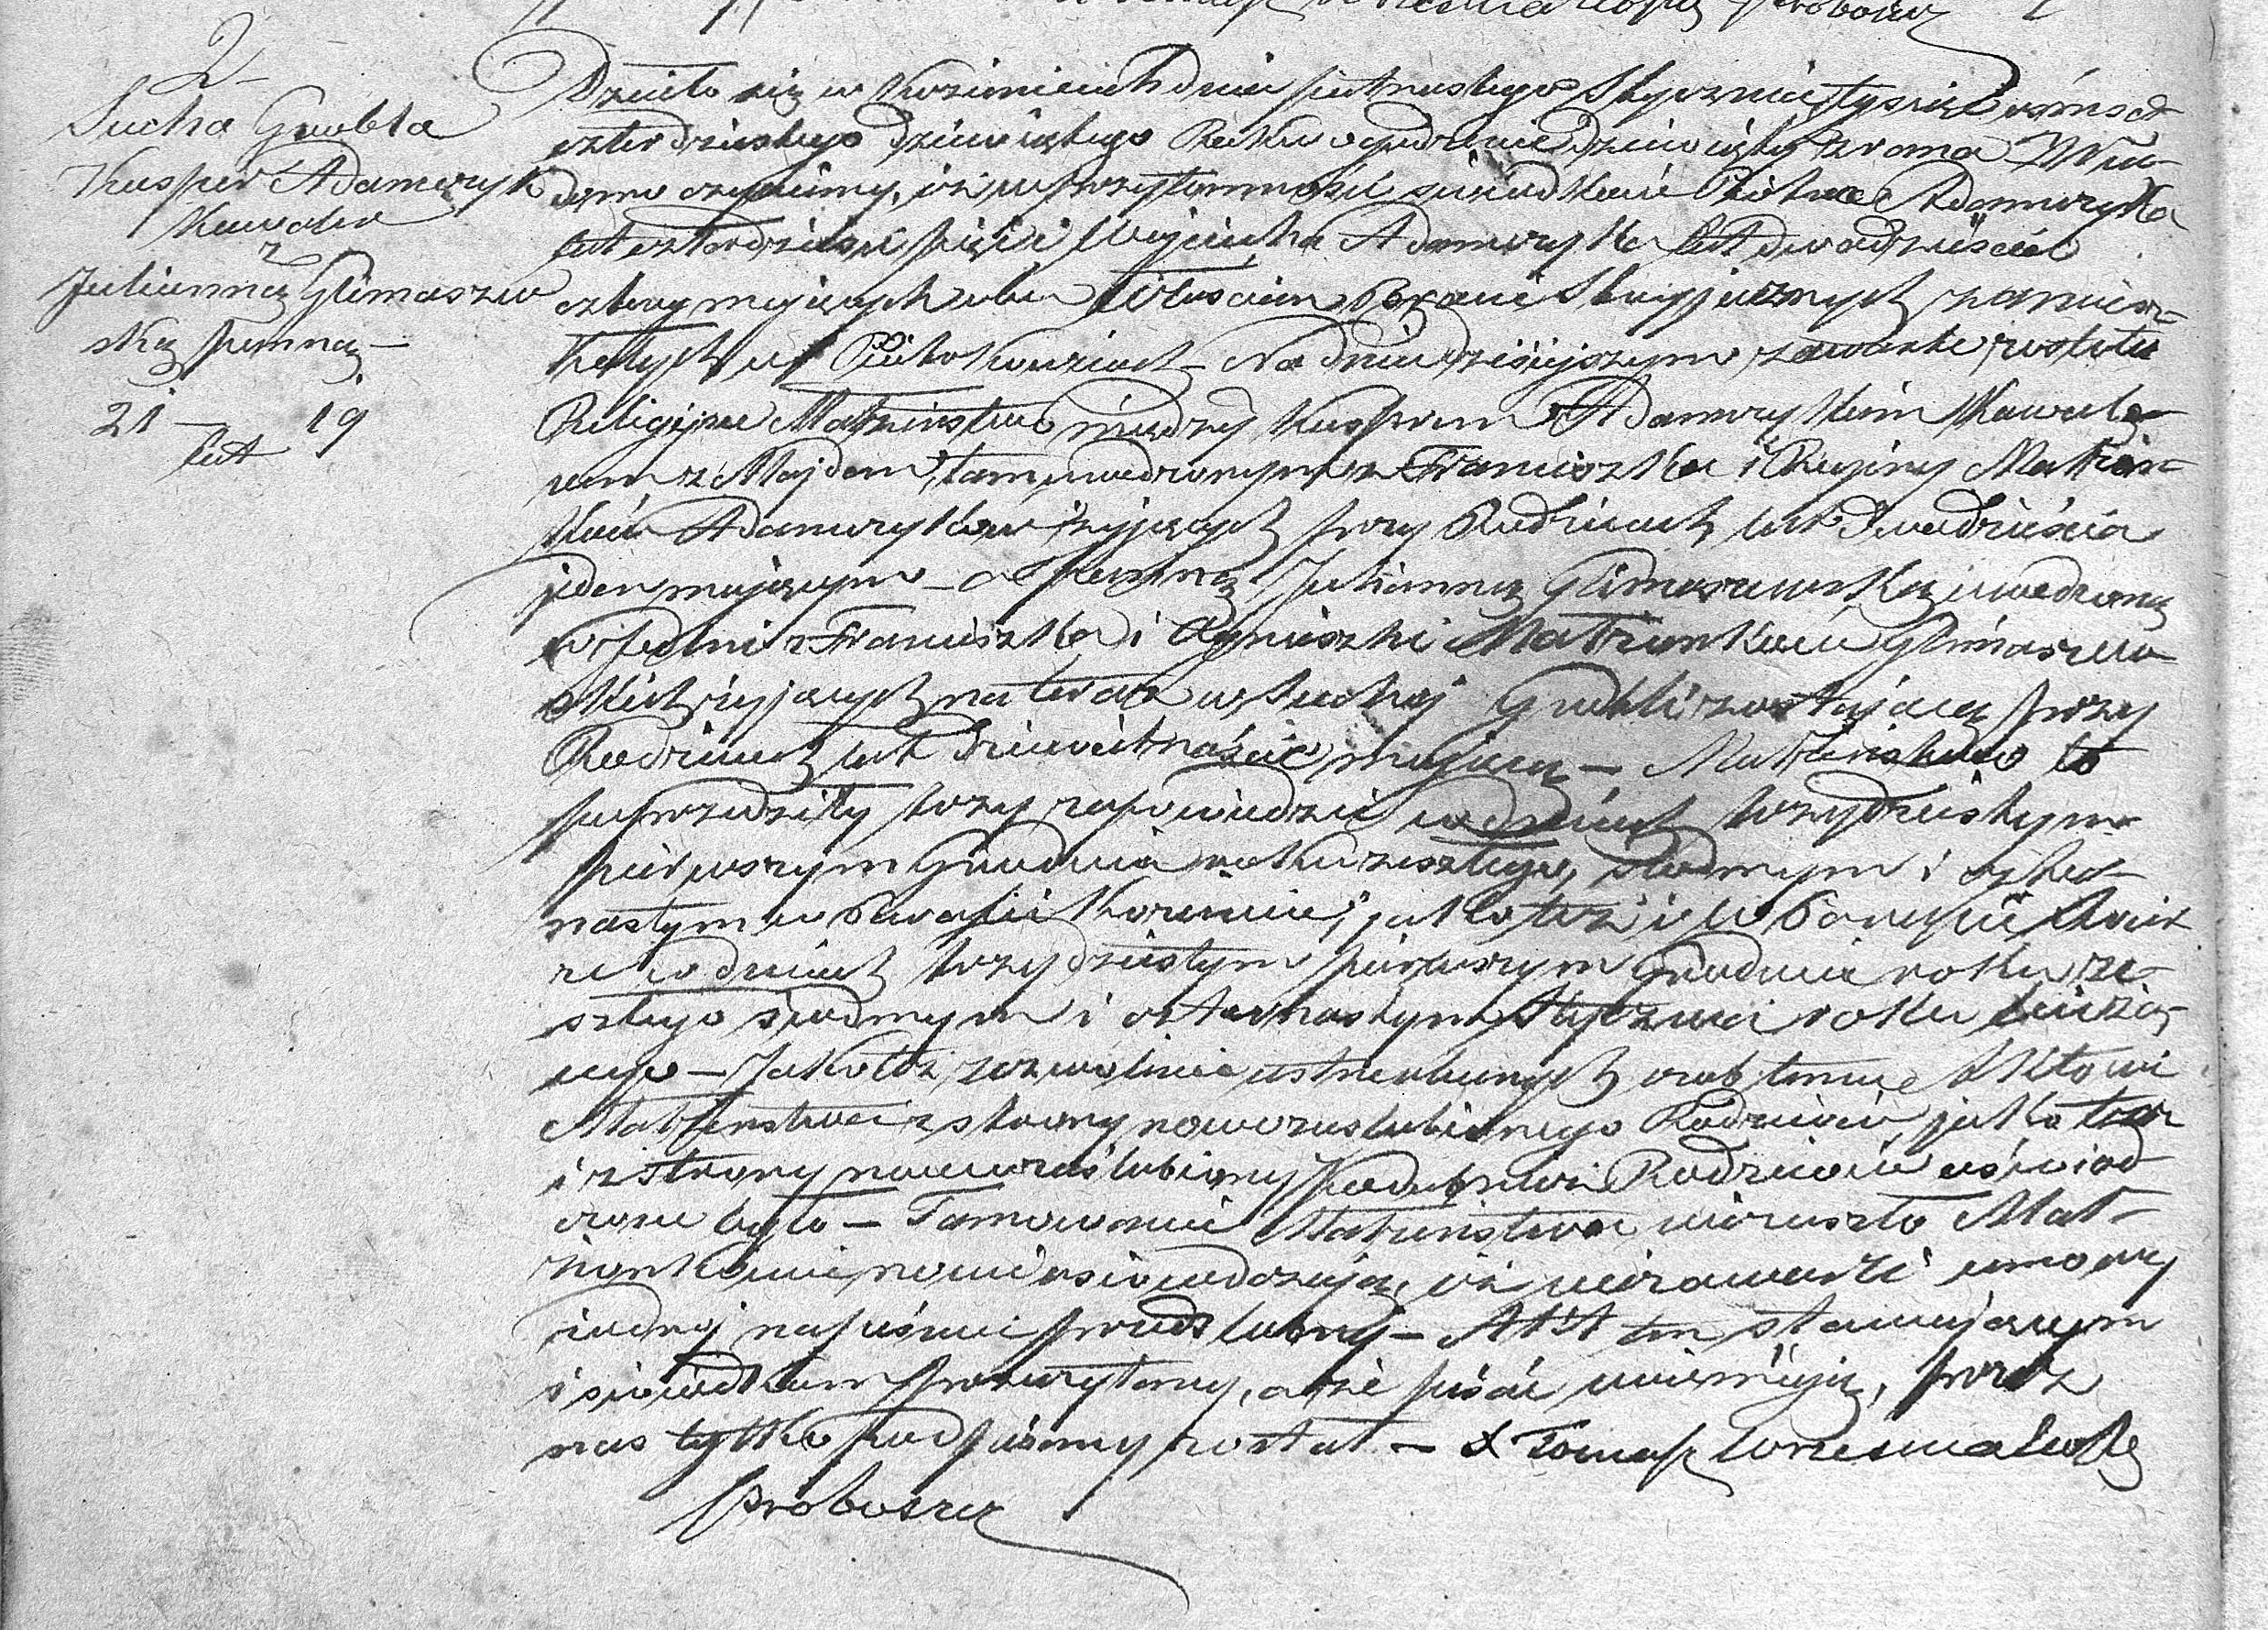 Proboszcz
2
Sucha Grobla
Kasper Adamczyk
Kawaler
z
Julianną Glimaszew
ską Panną
21 — 19
lat
Działo się w Kozienicach dnia piętnastego Stycznia tysiąc ośmset
czterdziestego dziewiątego Roku o godzinie dziewiąty z rana Wia-
domo czynimy, iż w przytomności świadków Piotra Adamczyka
lat czterdzieści pięć i Wojciecha Adamczyka lat dwadzieścia
cztery mających obu Włościan zamiesz-
kałych w Na dniu dzisiejszym zawarte zostało
Religijne Małżeństwo między Kasprem Adamczykiem Kawale-
rem z Majdan, tam urodzonym z Franciszka i Reginy Małżon-
ków Adamczyków żyjących przy Rodzicach, lat dwadzieścia
jeden mającym — a Panną Julianną Glimaszewską urodzoną
w Jedlni z Franciszka i Agnieszki Małżonków Glimaszew
skich żyjących na teraz w Suchej Grobli zostającą przy
Rodzicach lat dziewiętnaście mającą — Małżeństwo to
poprzedziły trzy zapowiedzie w dniach trzydziestym
pierwszym Grudnia roku zeszłego, siodmym i czter-
nastym w Parafii Kozienice, jako też i w Parafii
w dniach trzydziestym pierwszym Grudnia roku ze-
szłego siodmym i czternastym Stycznia roku bieżą-
cego — Jakoteż zezwolenie ustne obecnych temu Aktowi
Małżeństwa z strony nowozaślubionego Rodziców, jako też
i z strony nowozaślubiony Rodziców oświad
czone było — Tamowanie Małżeństwa nie zaszło Mał-
żonkowie nowi oświadczają, iż nie zawarli umowy
żadnej na piśmie przedślubny — Akt ten stawającym
i świadkom przeczytany, a że pisać nieumieją, przez
nas tylko podpisany został — X Tomasz
Proboszcz